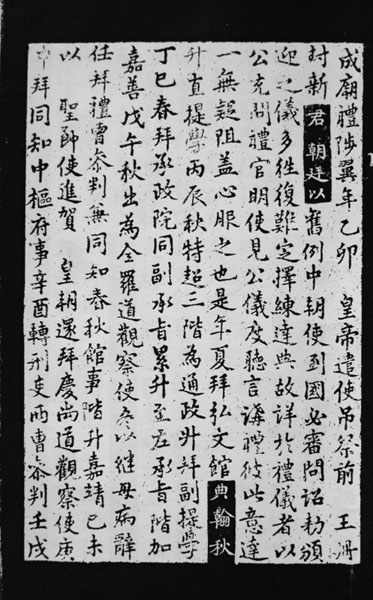 成廟禮陟翼年乙卯 皇帝遣使弔祭前 王冊
封新君 朝廷以舊例中朝使到國必審問詔勅頒
迎之儀多往復難定擇練達典故詳於禮儀者以
公充問禮官明使見公儀度聽言講禮彼此意達
一無疑阻盖心服之也是年夏拜弘文館典翰秋
升直提學丙辰秋特超三階為通政升拜副提學
丁巳春拜承政院同副承旨累升至左承旨階加
嘉善戊午秋出為全羅道觀察使冬以継母病辭
任拜禮曹叅判兼同知春秋館事階升嘉靖己未
以 聖節使進賀 皇朝還拜慶尚道觀察使庚
申拜同知中樞府事辛酉轉刑吏兩曹叅判壬戌